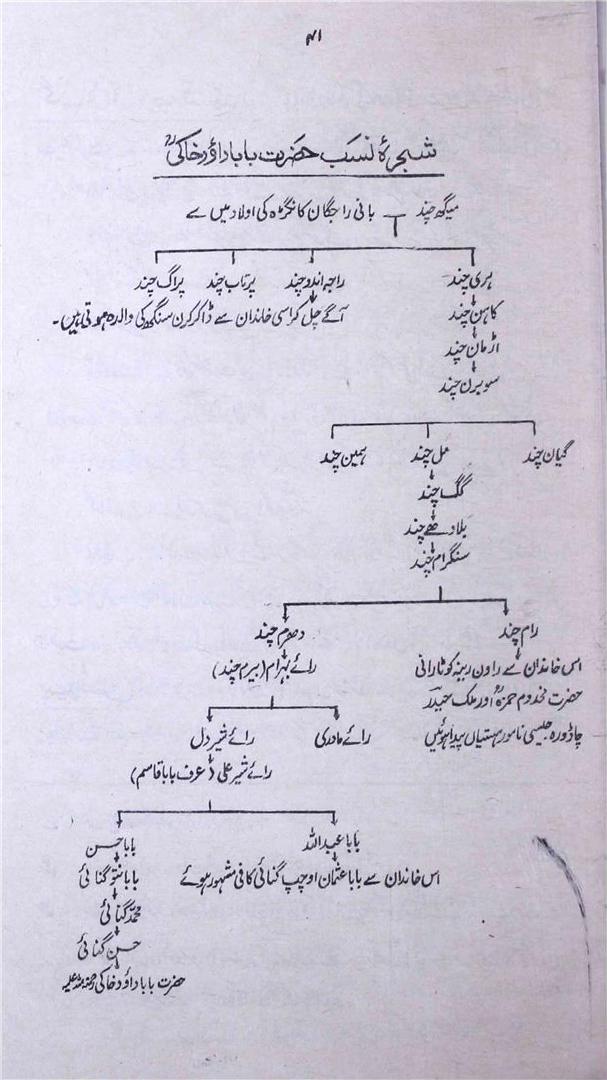 ۴۱
شجرۂ نسب حضرت بابا داؤد خاکیؒ
میگھ چند بانی راجگان کانگڑہ کی اولاد میں سے
ہری چند راجہ اندوچند پرتاب چند پراگ چند
کاہن چند آگے چل کر اسی خاندان سے ڈاکٹر کرن سنگھ کی والدہ ہوتی ہیں۔
اڑمان چند
سوبرن چند
گیان چند مل چند ہمین چند
گگ چند
بلادھے چند
سنگرام چند
رام چند دھرم چند
اس خاندان سے راون رینہ کوٹارانی رائے بہرام (بیرم چند)
حضرت مخدوم حمزہؒ اور ملک حیدر
چاڈورہ جیسی نامور ہستیاں پیدا ہوئیں
رائے مادری رائے شیر دل
رائے شیر علی (عرف بابا قاسم)
بابا عبداللہ بابا حسن
اس خاندان سے بابا عثمان اوچپ گنائی کافی مشہور ہوئے بابا نتو گنائی
محمد گنائی
حسن گنائی
حضرت بابا داؤد خاکی رحمۃ اللہ علیہ